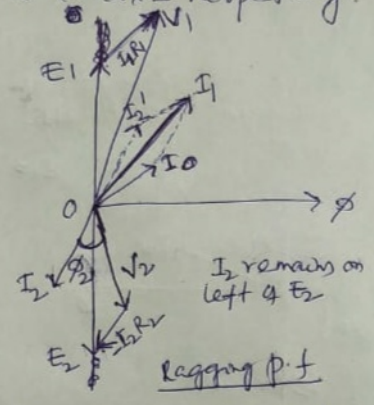 V1
E1
I1R1
I2'
I1
I0
O
φ
I2
φ2
V2
I2 remains on
left of E2
I2R2
E2
Ragging p.f